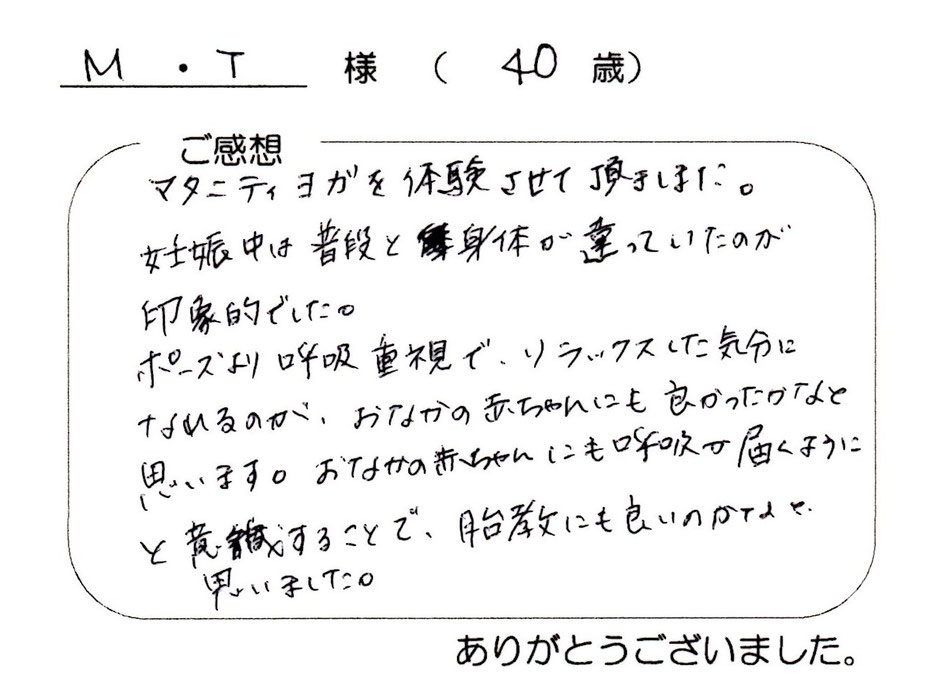 M・T 様 (40歳)
ご感想
マタニティヨガを体験させて頂きました。
妊娠中は普段と身体が違っていたのが
印象的でした。
ポーズより呼吸重視で、リラックスした気分に
なれるのが、おなかの赤ちゃんにも良かったかなと
思います。おなかの赤ちゃんにも呼吸が届くように
と意識することで、胎教にも良いのかなと、
思いました。
ありがとうございました。